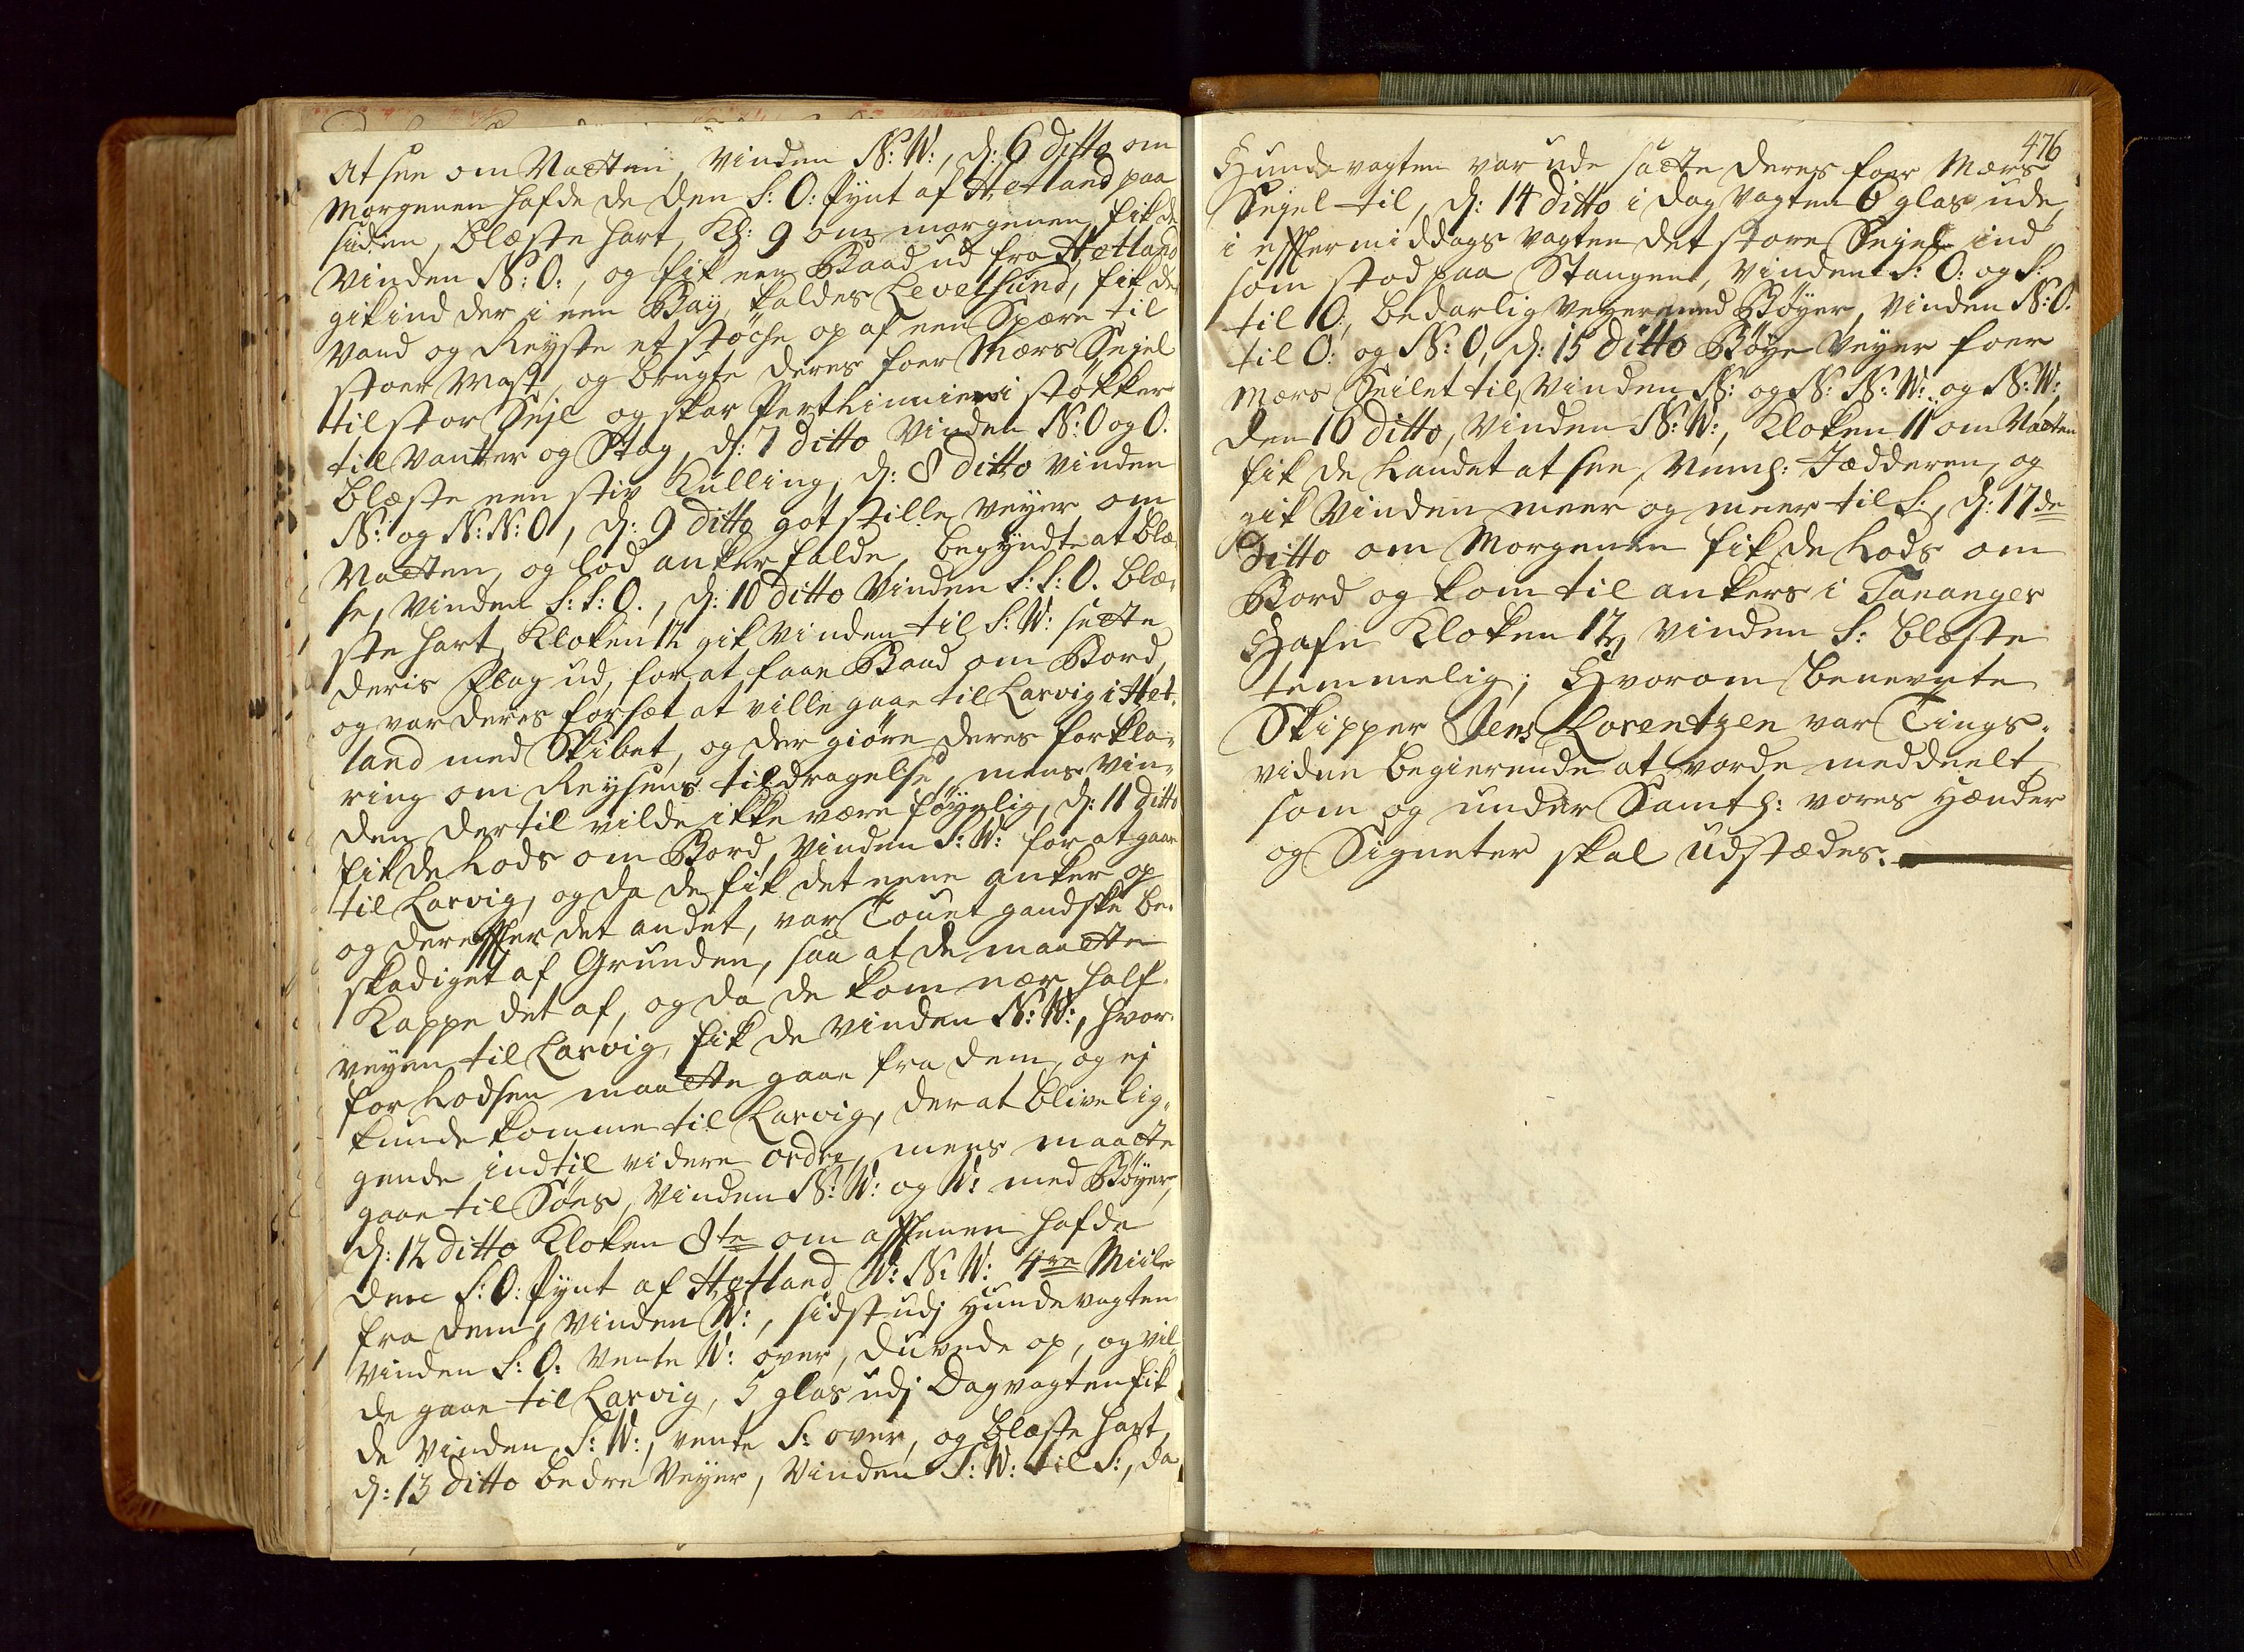 at see om Natten, Vinden N: W:, d: 6 ditto om
Morgenen hafde de den S: O: Pynt af Hetland paa
siden, blæste hart, Kl: 9 om morgenen fik de
Vinden N: O:, og fik een Baad ud fra Hetland
gik ind der i een Bay, kaldes Levelsund, fik der
Vand og Reyste et støche op af een Spære til
stoer Mast, og brugte deres foer Mærs Sejel
til stor Sejl og skar Perthinnier i støkker
til Vanter og Stag, d: 7 ditto Vinden N: O og O.
blæste een stiv Kulling, d: 8 ditto Vinden
N: og N: N: O, d: 9 ditto got stille Veyer om
Natten, og lod anker falde, begyndte at blæ-
se, Vinden S: S: O., d: 10 ditto Vinden S: S: O. blæ-
ste hart, Kloken 12 gik Vinden til S: W: sætte
deris Flag ud, for at faae Baad om Bord,
og var deres forsæt at ville gaae til Larvig i Het-
land med Skibet, og der giøre deres forkla-
ring om Reysens tildragelse, mens Vin-
den dertil vilde ikke være føyelig, d: 11 ditto
fik de Lods om Bord, Vinden S: W: for at gaae
til Larvig, og da de fik det eene anker op
og derefter det andet, var Touet gandske be-
skadiget af Grunden, saa at de maatte
Kappe det af, og da de kom nær half-
veyen til Larvig, fik de Vinden N: W:, hvor-
for Lodsen maatte gaae fra dem, og ej
kunde komme til Larvig, der at blive lig-
gende indtil videre ordre, mens maatte
gaae til Søes, Vinden N: W: og W: med Bøyer,
d: 12 ditto Kloken 8te om afftenen hafde
den S: O: Pynt af Hetland W: N: W: 4re Miile
fra dem, Vinden W:, sidst udj Hundevagten
Vinden S: O: Vente W: over, duvede op, og vil-
de gaae til Larvig, 5 glas udj Dagvagten fik
de Vinden S: W:, vente S: over, og blæste hart,
d: 13 ditto bedre Veyer, Vinden S: W: til S:, da
476
Hundevagten var ude satte deres foer Mærs
Sejel til, d: 14 ditto i dag Vagten 6 glas ude,
i efftermiddags Vagten det store Sejel ind
som stod paa Stangen, Vinden S: O: og S:
til O:, bedarlig Veyer med Bøyer, Vinden N: O:
til O: og N: O, d: 15 ditto Bøye Veyer foer
Mærs Seilet til, Vinden N: og N: N: W: og N: W:,
den 16 ditto, Vinden N: W:, Kloken 11 om Natten
fik de Landet at see, Neml: Jædderen, og
gik Vinden meer og meer til S:, d: 17de
ditto om Morgenen fik de Lods om
Bord og kom til ankers i Tananger
Hafn Kloken 12, Vinden S: blæste
temmelig; Hvorom benevnte
Skipper Jens Lorentzen var Tings-
vidne begierende at vorde meddeelt,
som og under Samtl: vores Hænder
og Signeter skal udstædes.